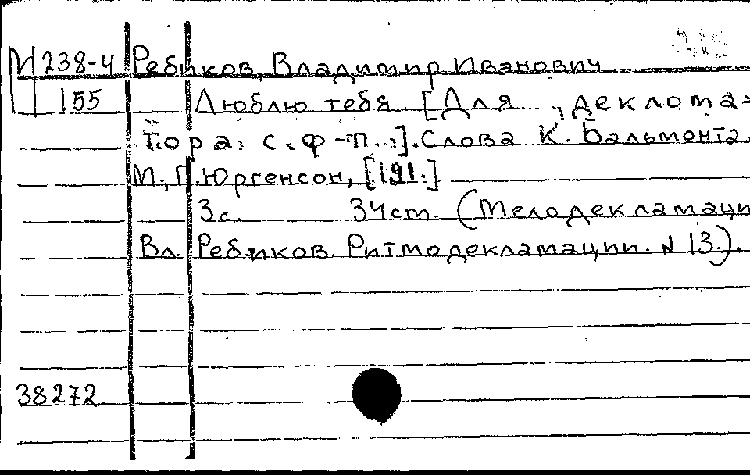 М 238-4 Ребиков, Владимир Иванович
155 Люблю тебя [Для декломa=
тора с ф-п.]. Слова К. Бальмонта.
М., П. Юргенсон, [191.]
3 с. 34 cm. (Мелодекламаци
Вл. Ребиков. Ритмодекламации. N 13).
38272